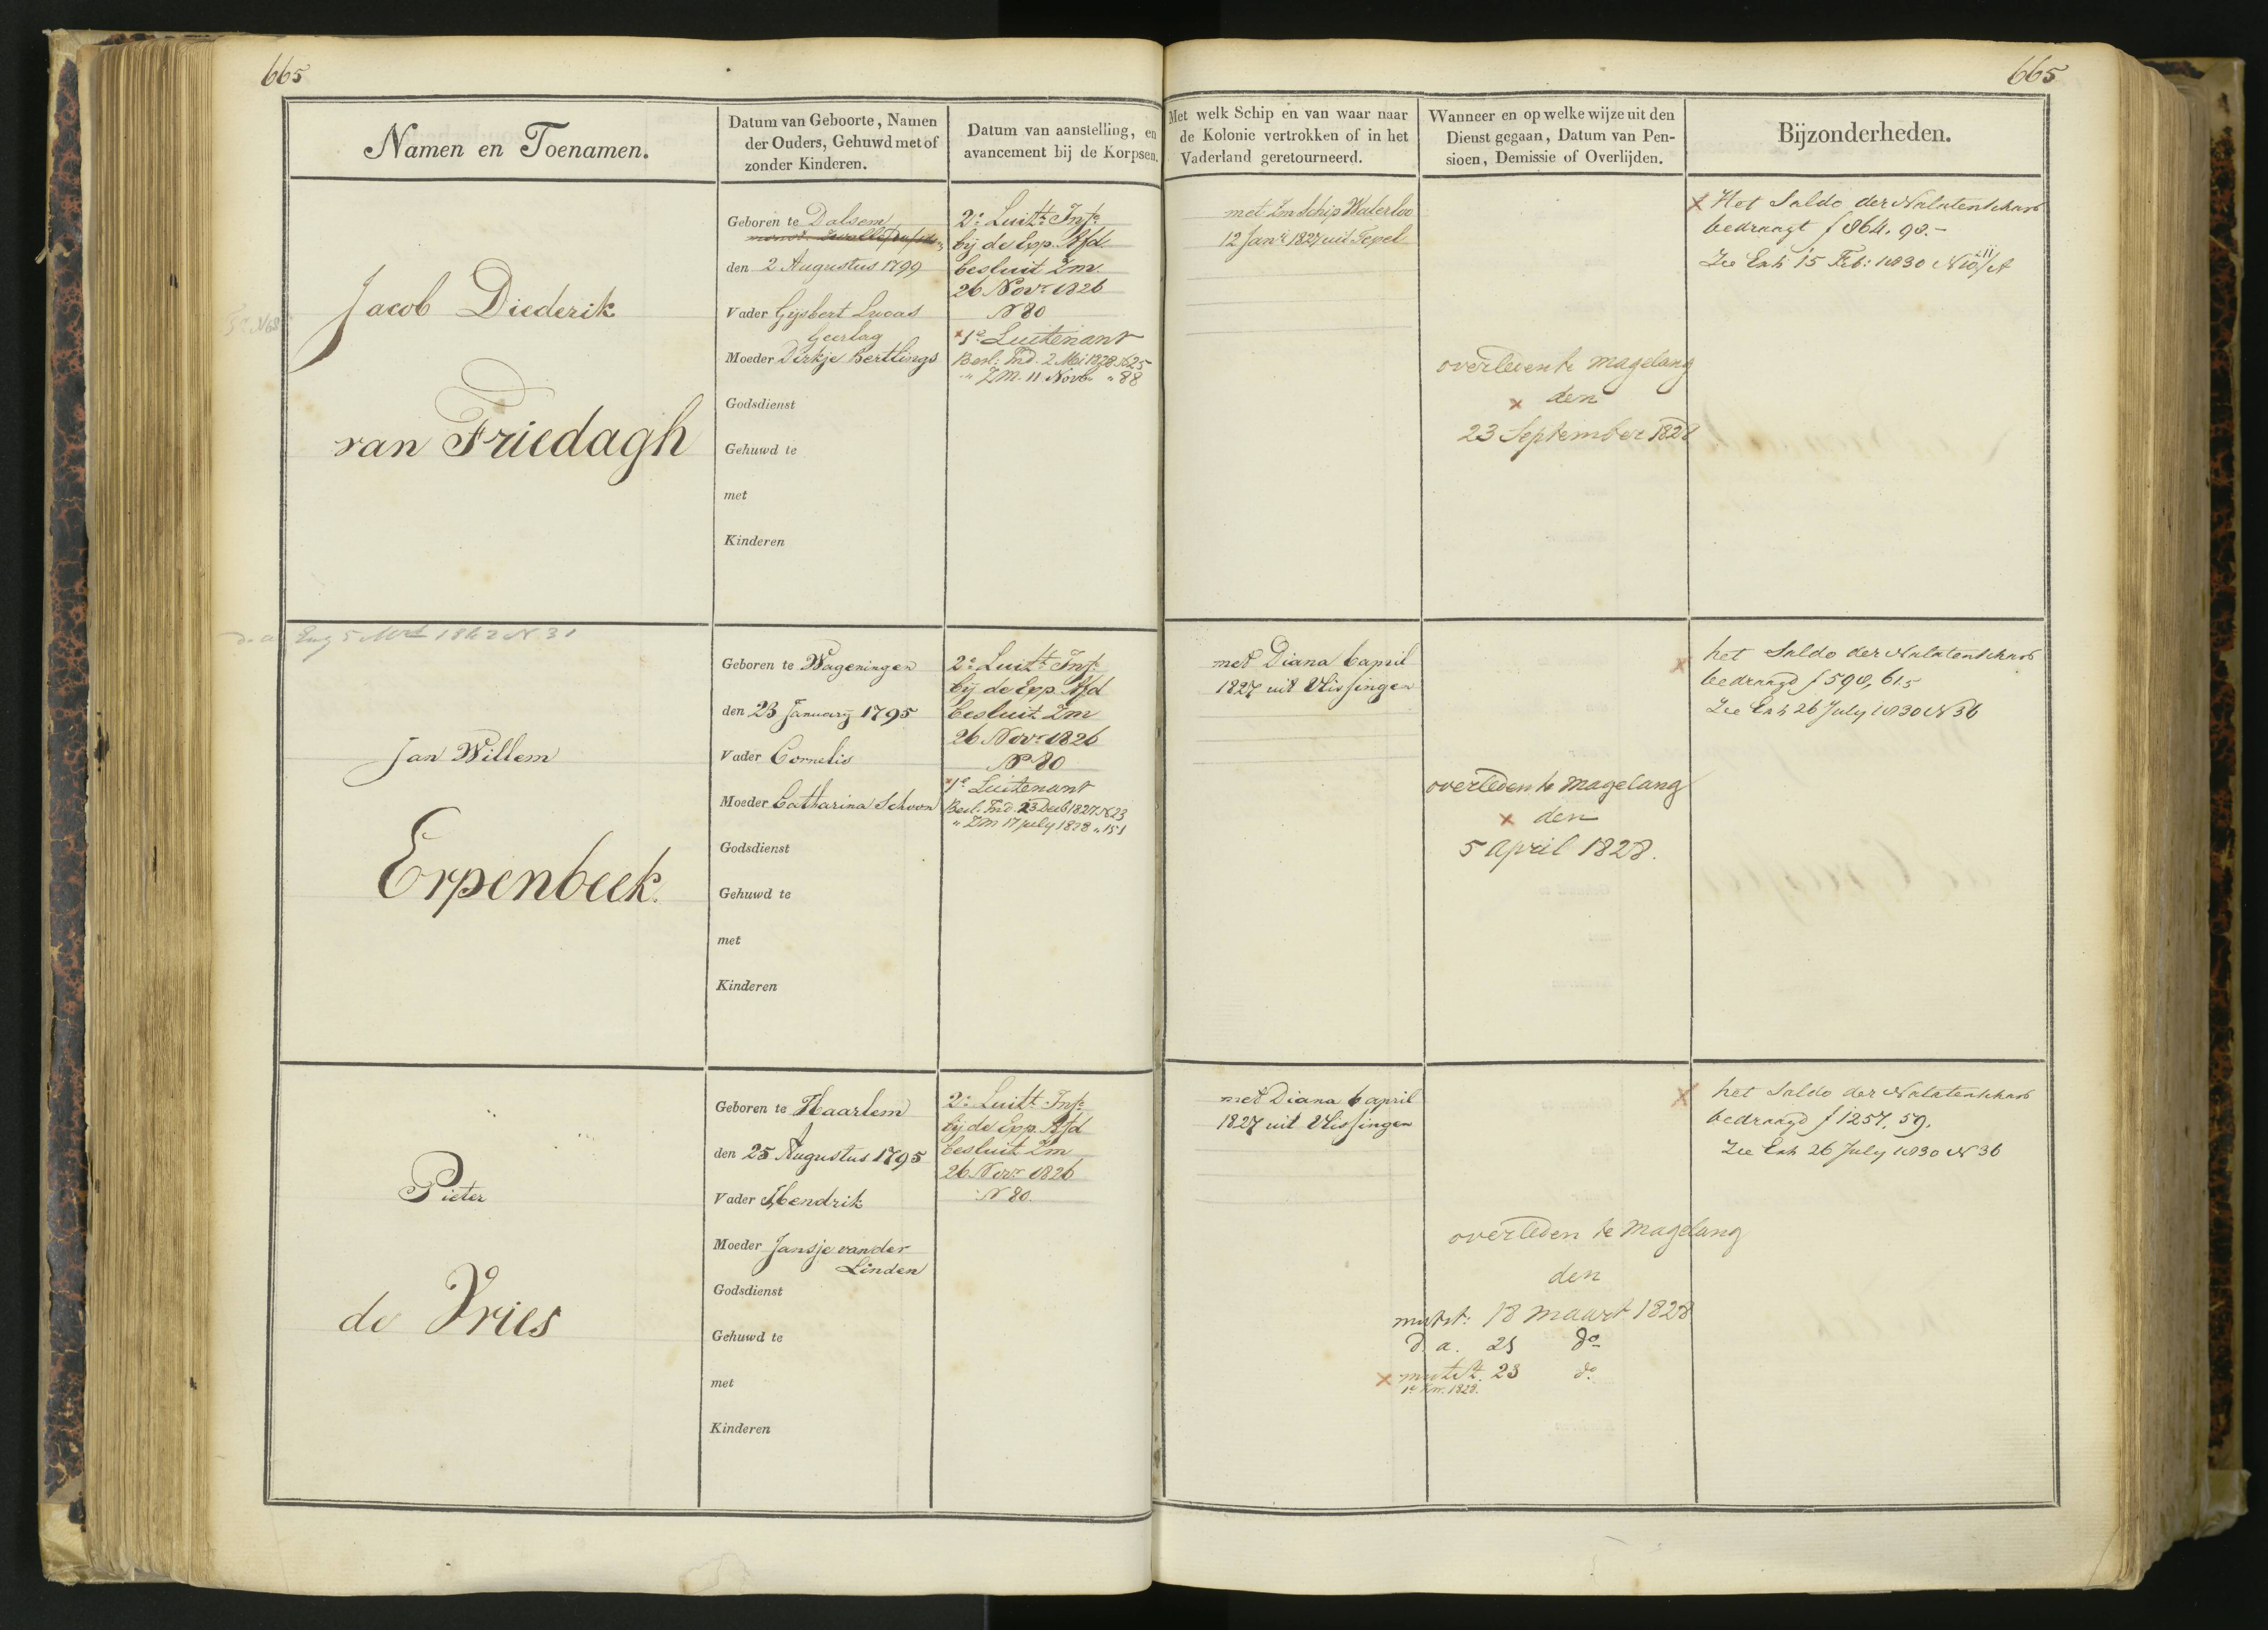 665
665
Namen en Toenamen.
Datum van Geboorte, Namen
der Ouders, Gehuwd met of
zonder Kinderen.
Datum van aanstelling, en
avancement bij de Korpsen.
Met welk Schip en van waar naar
de Kolonie vertrokken of in het
Vaderland geretourneerd.
Wanneer en op welke wijze uit den
Dienst gegaan, Datum van Pen-
sioen, Demissie of Overlijden.
Bijzonderheden.
Jacob Diederik
van Friedagh
Geboren te Dalsem
den 2 Augustus 1799
Vader Gijsbert Lucas
Geerlag
Moeder Dirkje Bertlings
Godsdienst
Gehuwd te
met
Kinderen
2e Luitt Infe
bij de Exp. Afd
besluit Zm.
26 Novr 1826
No 80
x 1e Luitenant
Besl: Ind. 2 Mei 1828 No 25
" ZM. 11 Novb. " 88
met Zm Schip Waterloo
12 Jani 1827 uit Texel
overleden te magelang
x den
23 September 1828
x Het Saldo der Nalatenschap
bedraagt f 864. 98.-
Zie Exh 15 Feb: 1830 N 10/A
Eng 5 Mrt 1842 N 31
Jan Willem
Erpenbeek.
Geboren te Wageningen
den 23 January 1795
Vader Cornelis
Moeder Catharina Schoon
Godsdienst
Gehuwd te
met
Kinderen
2e Luitt Inf:
bij de Exp. Afd
besluit Zm
26 Novr 1826
No 80
x 1e Luitenant
Besl. Ind. 23 Decb 1827 N 23
" ZM 17 july 1828 " 151
met Diana 6 april
1827 uit Vlissingen
overleden te magelang
x den
5 april 1828.
x het Saldo der Nalatenschap
bedraagd f 598, 61.5
Zie Exh 26 July 1830 N 36
Pieter
de Vries
Geboren te Haarlem
den 25 Augustus 1795
Vader Hendrik
Moeder Jansje van der
Linden
Godsdienst
Gehuwd te
met
Kinderen
2e Luitt Infe
bij de Exp. Afd
besluit Zm
26 Novr 1826
N 80.
met Diana 6 april
1827 uit Vlissingen
overleden te magelang
den
mutst: 18 maart 1828
d. a. 25 do
x mutst. 23 do
1e Kw. 1828.
x het Saldo der Nalatenschap
bedraagd f 1257. 59.
Zie Exh 26 July 1830 N 36